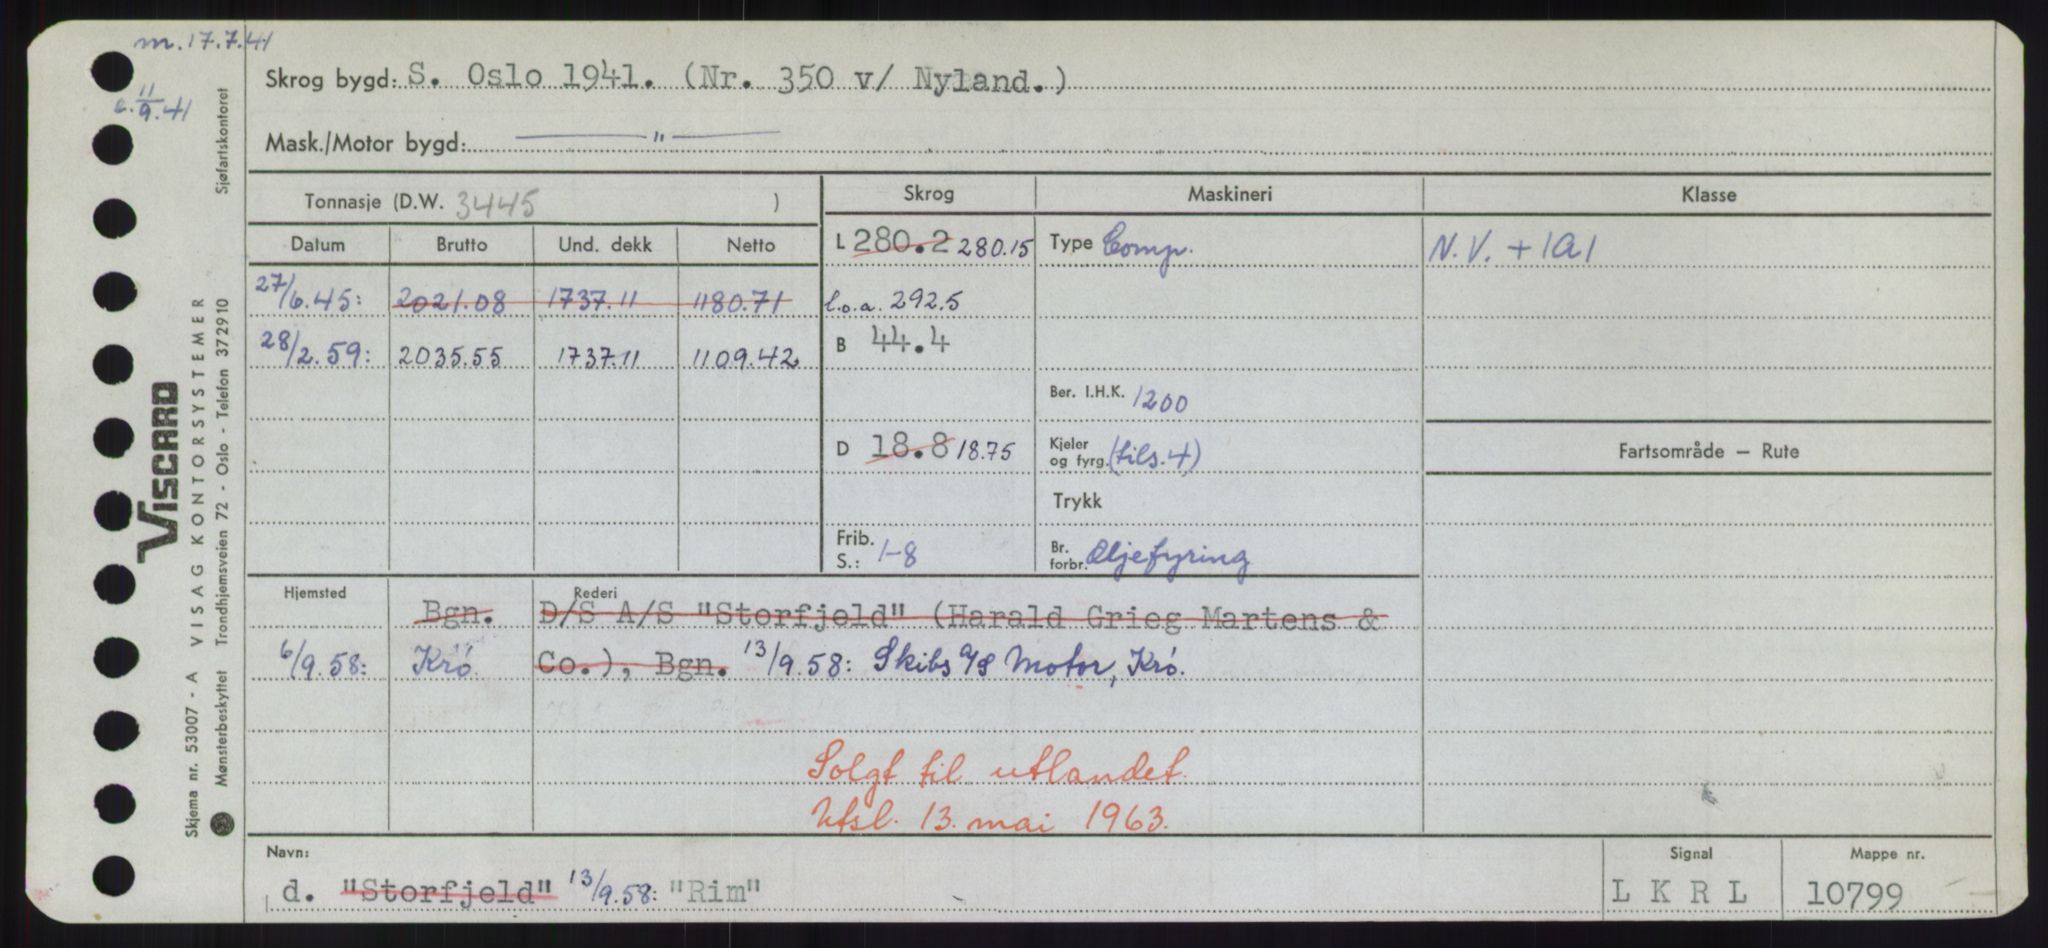 m. 17.7.41
c. 11/9.41
Sjøfartskontoret
Skrog bygd: S. Oslo 1941. (Nr. 350 v/ Nyland.)
Mask./Motor bygd: — " —
Tonnasje (D.W. 3445 )
Skrog Maskineri Klasse
Datum Brutto Und. dekk Netto
L 280.2 280.15 Type Comp. N.V. + 1A1
27/6.45: 2021.08 1737.11 1180.71 l.o.a. 292.5
28/2.59: 2035.55 1737.11 1109.42 B 44.4
Ber. I.H.K. 1200
D 18.8 18.75 Kjeler og fyrg. (tils. 4) Fartsområde – Rute
Trykk
Frib. S.: 1-8 Br. forbr. Oljefyring
Hjemsted Rederi
Bgn. D/S A/S "Storfjeld" (Harald Grieg Martens &
6/9.58: Krö. Co.), Bgn. 13/9.58: Skibs A/S Motor, Krö.
Solgt til utlandet.
Utsl. 13. mai 1963.
Navn: Signal Mappe nr.
d. "Storfjeld" 13/9.58: "Rim" LKRL 10799
VISCARD
Skjema nr. 53007 - A VISAG KONTORSYSTEMER
Mønsterbeskyttet Trondhjemsveien 72 - Oslo - Telefon 372910